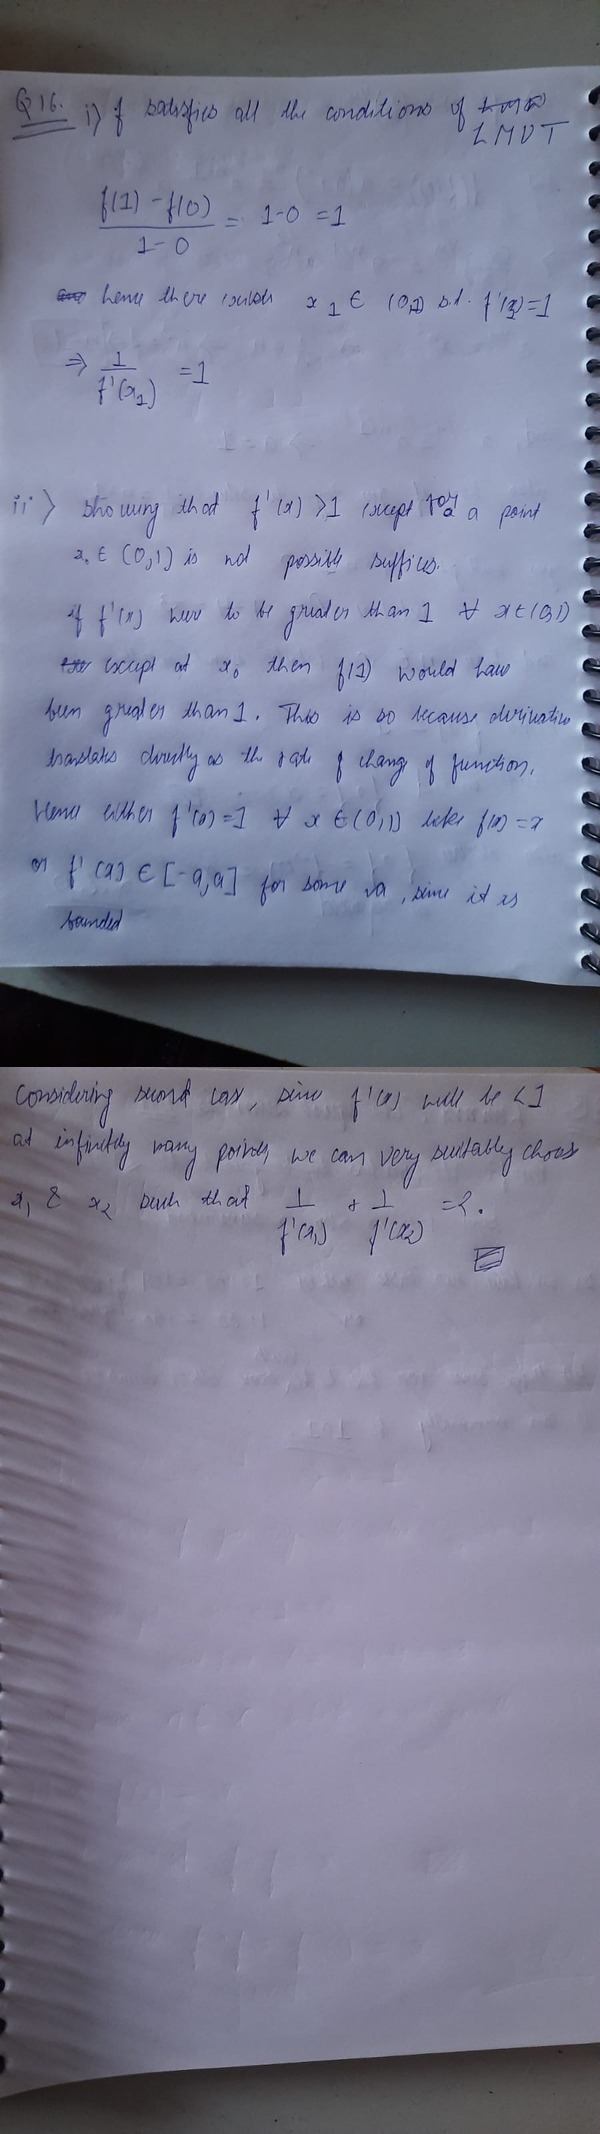 Q16. i) f satisfies all the conditions of
LMVT
f(1) - f(0) / 1 - 0 = 1-0 = 1
hence there exists x₁ ∈ (0,1) s.t. f'(x₁)=1
⇒ 1 / f'(x₁) = 1
ii) showing that f'(x) > 1 except for a point
x₀ ∈ (0,1) is not possible suffices.
if f'(x) were to be greater than 1 ∀ x ∈ (0,1)
except at x₀ then f(1) would have
been greater than 1. This is so because derivative
translates directly as the rate of change of function.
Hence either f'(x)=1 ∀ x ∈ (0,1) like f(x) = x
or f'(x) ∈ [-a,a] for some a, since it is
bounded
Considering second case, since f'(x) will be <1
at infinitely many points, we can very suitably choose
x₁ & x₂ such that 1 / f'(x₁) + 1 / f'(x₂) = 2.